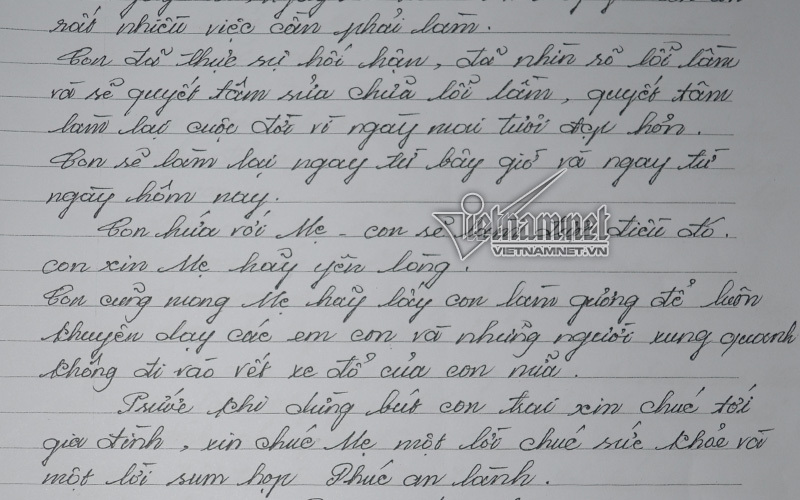 rất nhiều việc cần phải làm.
Con đã thực sự hối hận, đã nhìn rõ lỗi lầm
và sẽ quyết tâm sửa chữa lỗi lầm, quyết tâm
làm lại cuộc đời vì ngày mai tười đẹp hơn.
Con sẽ làm lại ngay từ bây giờ và ngay từ
ngày hôm nay.
Con hứa với Mẹ - con sẽ làm được điều đó.
con xin Mẹ hãy yên lòng.
Con cũng mong Mẹ hãy lấy con làm gường để luôn
khuyên dạy các em con và những người xung quanh
không đi vào vết xe đổ của con nữa.
Trước khi dừng bút con trai xin chúc tới
gia đình, xin chúc Mẹ một lời chúc sức khỏe và
một lời sum họp Phúc an lành.
vietnamnet
VIETNAMNET.VN